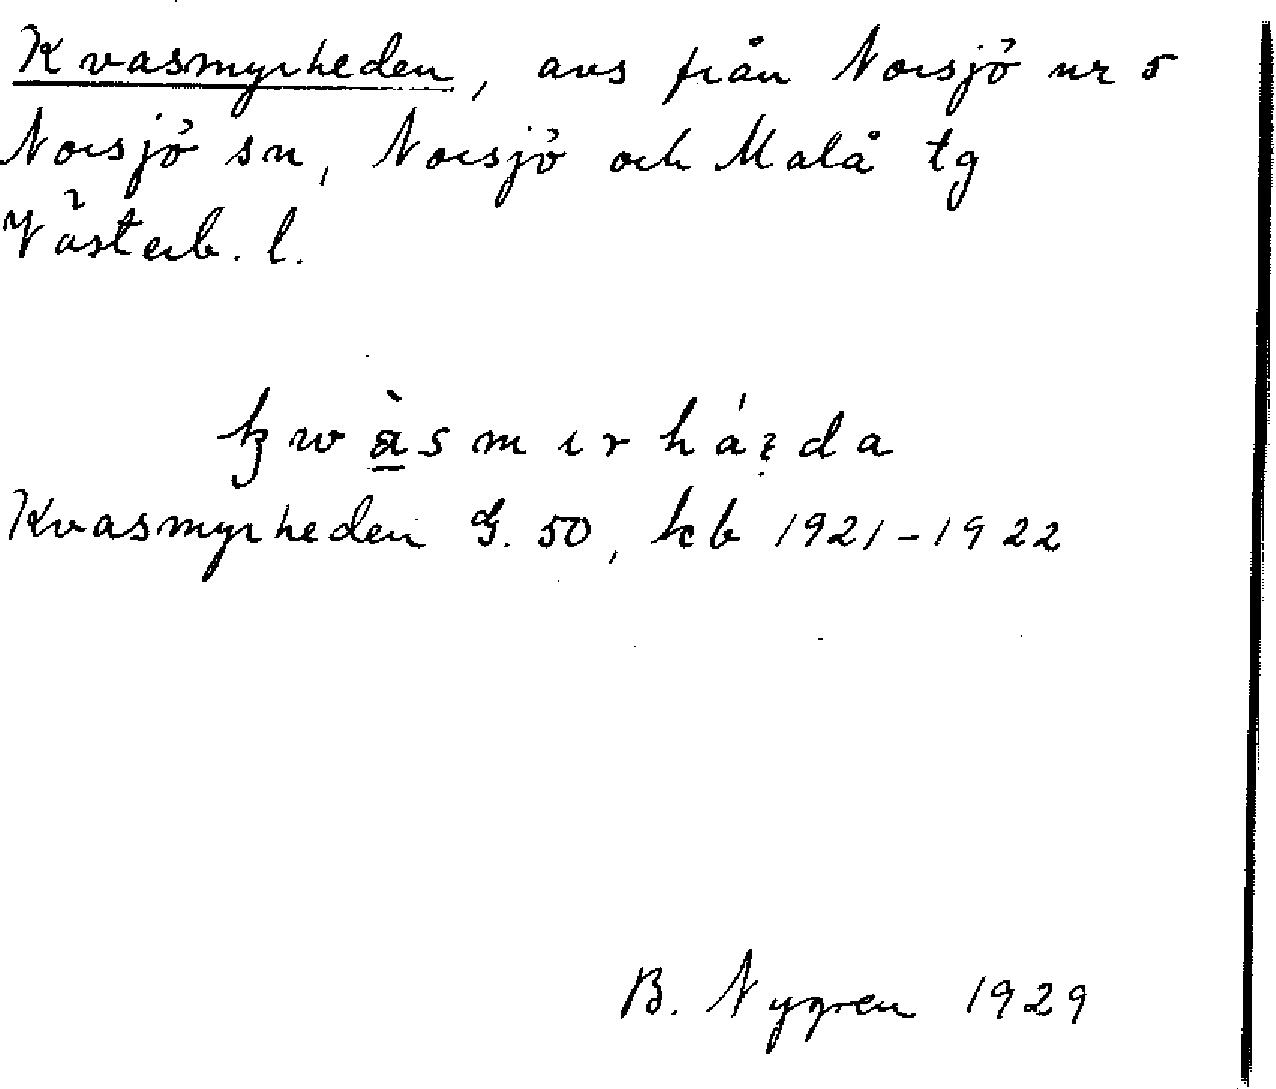 Kvasmyrheden, avs från Norsjö nr 5
Norsjö sn, Norsjö och Malå tg
Västerb. l.
Kvasmyrheden G. 50, kb 1921-1922
B. Nygren 1929